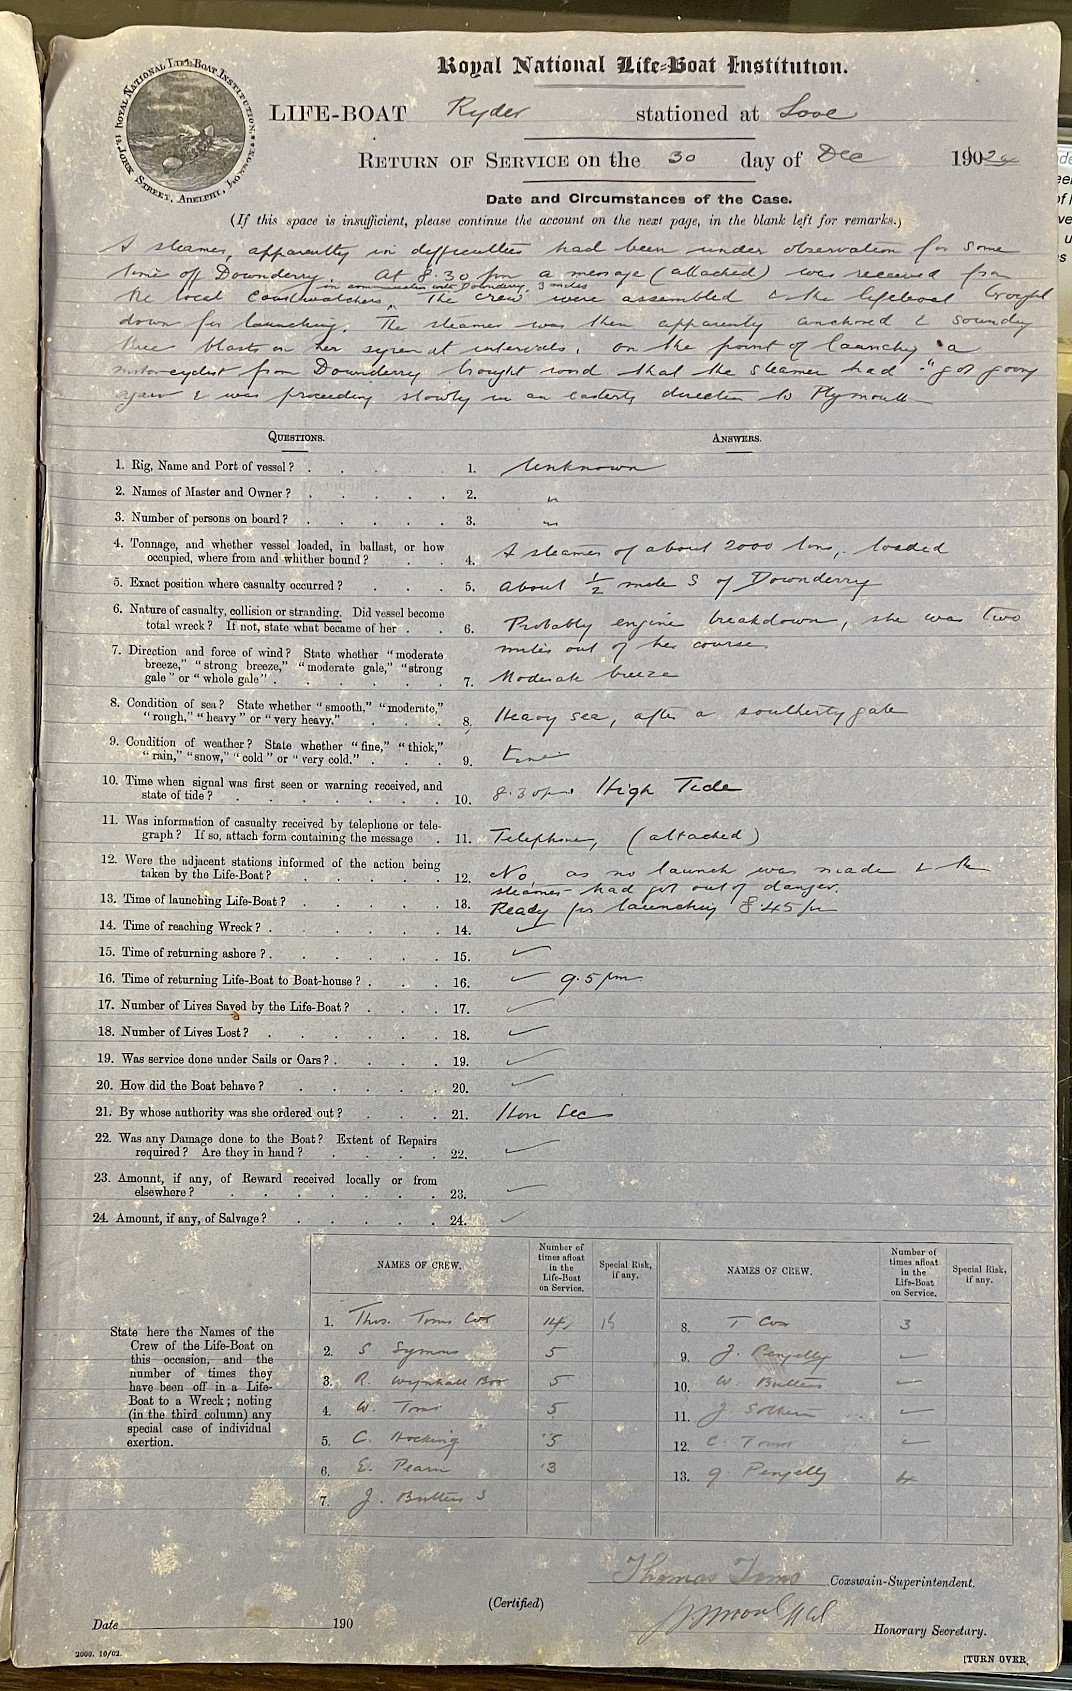 Royal National Life-Boat Institution.
ROYAL NATIONAL LIFE-BOAT INSTITUTION. 14, JOHN STREET, ADELPHI, LONDON.
LIFE-BOAT Ryder stationed at Looe
RETURN OF SERVICE on the 30 day of Dec 190
Date and Circumstances of the Case.
(If this space is insufficient, please continue the account on the next page, in the blank left for remarks.)
A steamer, apparently in difficulties had been under observation for some
time off Downderry. At 8.30 pm a message (attached) was received from
in communication with Downderry, 3 miles
the local Coastwatchers, The crew were assembled & the lifeboat brought
down for launching. The steamer was then apparently anchored & sounding
three blasts on her syren at intervals. On the point of launching a
motorcyclist from Downderry brought word that the steamer had "got going
again & was proceeding slowly in an easterly direction to Plymouth
QUESTIONS.
ANSWERS.
1. Rig, Name and Port of vessel? 1. Unknown
2. Names of Master and Owner? 2. "
3. Number of persons on board? 3. "
4. Tonnage, and whether vessel loaded, in ballast, or how
occupied, where from and whither bound? 4. A steamer of about 2000 tons, loaded
5. Exact position where casualty occurred? 5. About 1/2 mile S of Downderry
6. Nature of casualty, collision or stranding. Did vessel become
total wreck? If not, state what became of her. 6. Probably engine breakdown, she was two
miles out of her course
7. Direction and force of wind? State whether "moderate
breeze," "strong breeze," "moderate gale," "strong
gale" or "whole gale". 7. Moderate breeze
8. Condition of sea? State whether "smooth," "moderate,"
"rough," "heavy" or "very heavy." 8. Heavy sea, after a southerly gale
9. Condition of weather? State whether "fine," "thick,"
"rain," "snow," "cold" or "very cold." 9. Fine
10. Time when signal was first seen or warning received, and
state of tide? 10. 8.30pm High Tide
11. Was information of casualty received by telephone or tele-
graph? If so, attach form containing the message 11. Telephone, (attached)
12. Were the adjacent stations informed of the action being
taken by the Life-Boat? 12. No, as no launch was made & the
steamer had got out of danger.
13. Time of launching Life-Boat? 13. Ready for launching 8.45 pm
14. Time of reaching Wreck? 14.
15. Time of returning ashore? 15.
16. Time of returning Life-Boat to Boat-house? 16. 9.5 pm
17. Number of Lives Saved by the Life-Boat? 17.
18. Number of Lives Lost? 18.
19. Was service done under Sails or Oars? 19.
20. How did the Boat behave? 20.
21. By whose authority was she ordered out? 21. Hon Sec
22. Was any Damage done to the Boat? Extent of Repairs
required? Are they in hand? 22.
23. Amount, if any, of Reward received locally or from
elsewhere? 23.
24. Amount, if any, of Salvage? 24.
NAMES OF CREW. Number of times afloat in the Life-Boat on Service. Special Risk, if any. NAMES OF CREW. Number of times afloat in the Life-Boat on Service. Special Risk, if any.
State here the Names of the
Crew of the Life-Boat on
this occasion, and the
number of times they
have been off in a Life-
Boat to a Wreck; noting
(in the third column) any
special case of individual
exertion.
1. Thos. Toms Cox 14
2. S Symons 5
3. R. 5
4. W. Toms 5
5. C. Hocking 5
6. E. Pearn 3
7. J. Butters
8. T Cox 3
9. J. Pengelly
10. W. Butters
11. J.
12. C. Toms
13. G Pengelly 4
Thomas Toms Coxswain-Superintendent.
(Certified)
Honorary Secretary.
Date 190
2000. 10/02.
[TURN OVER.